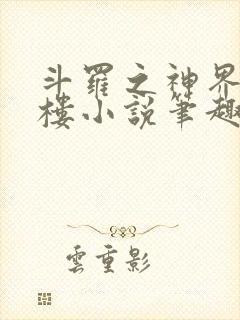 斗羅之神界
樓小說筆趣
雲重影